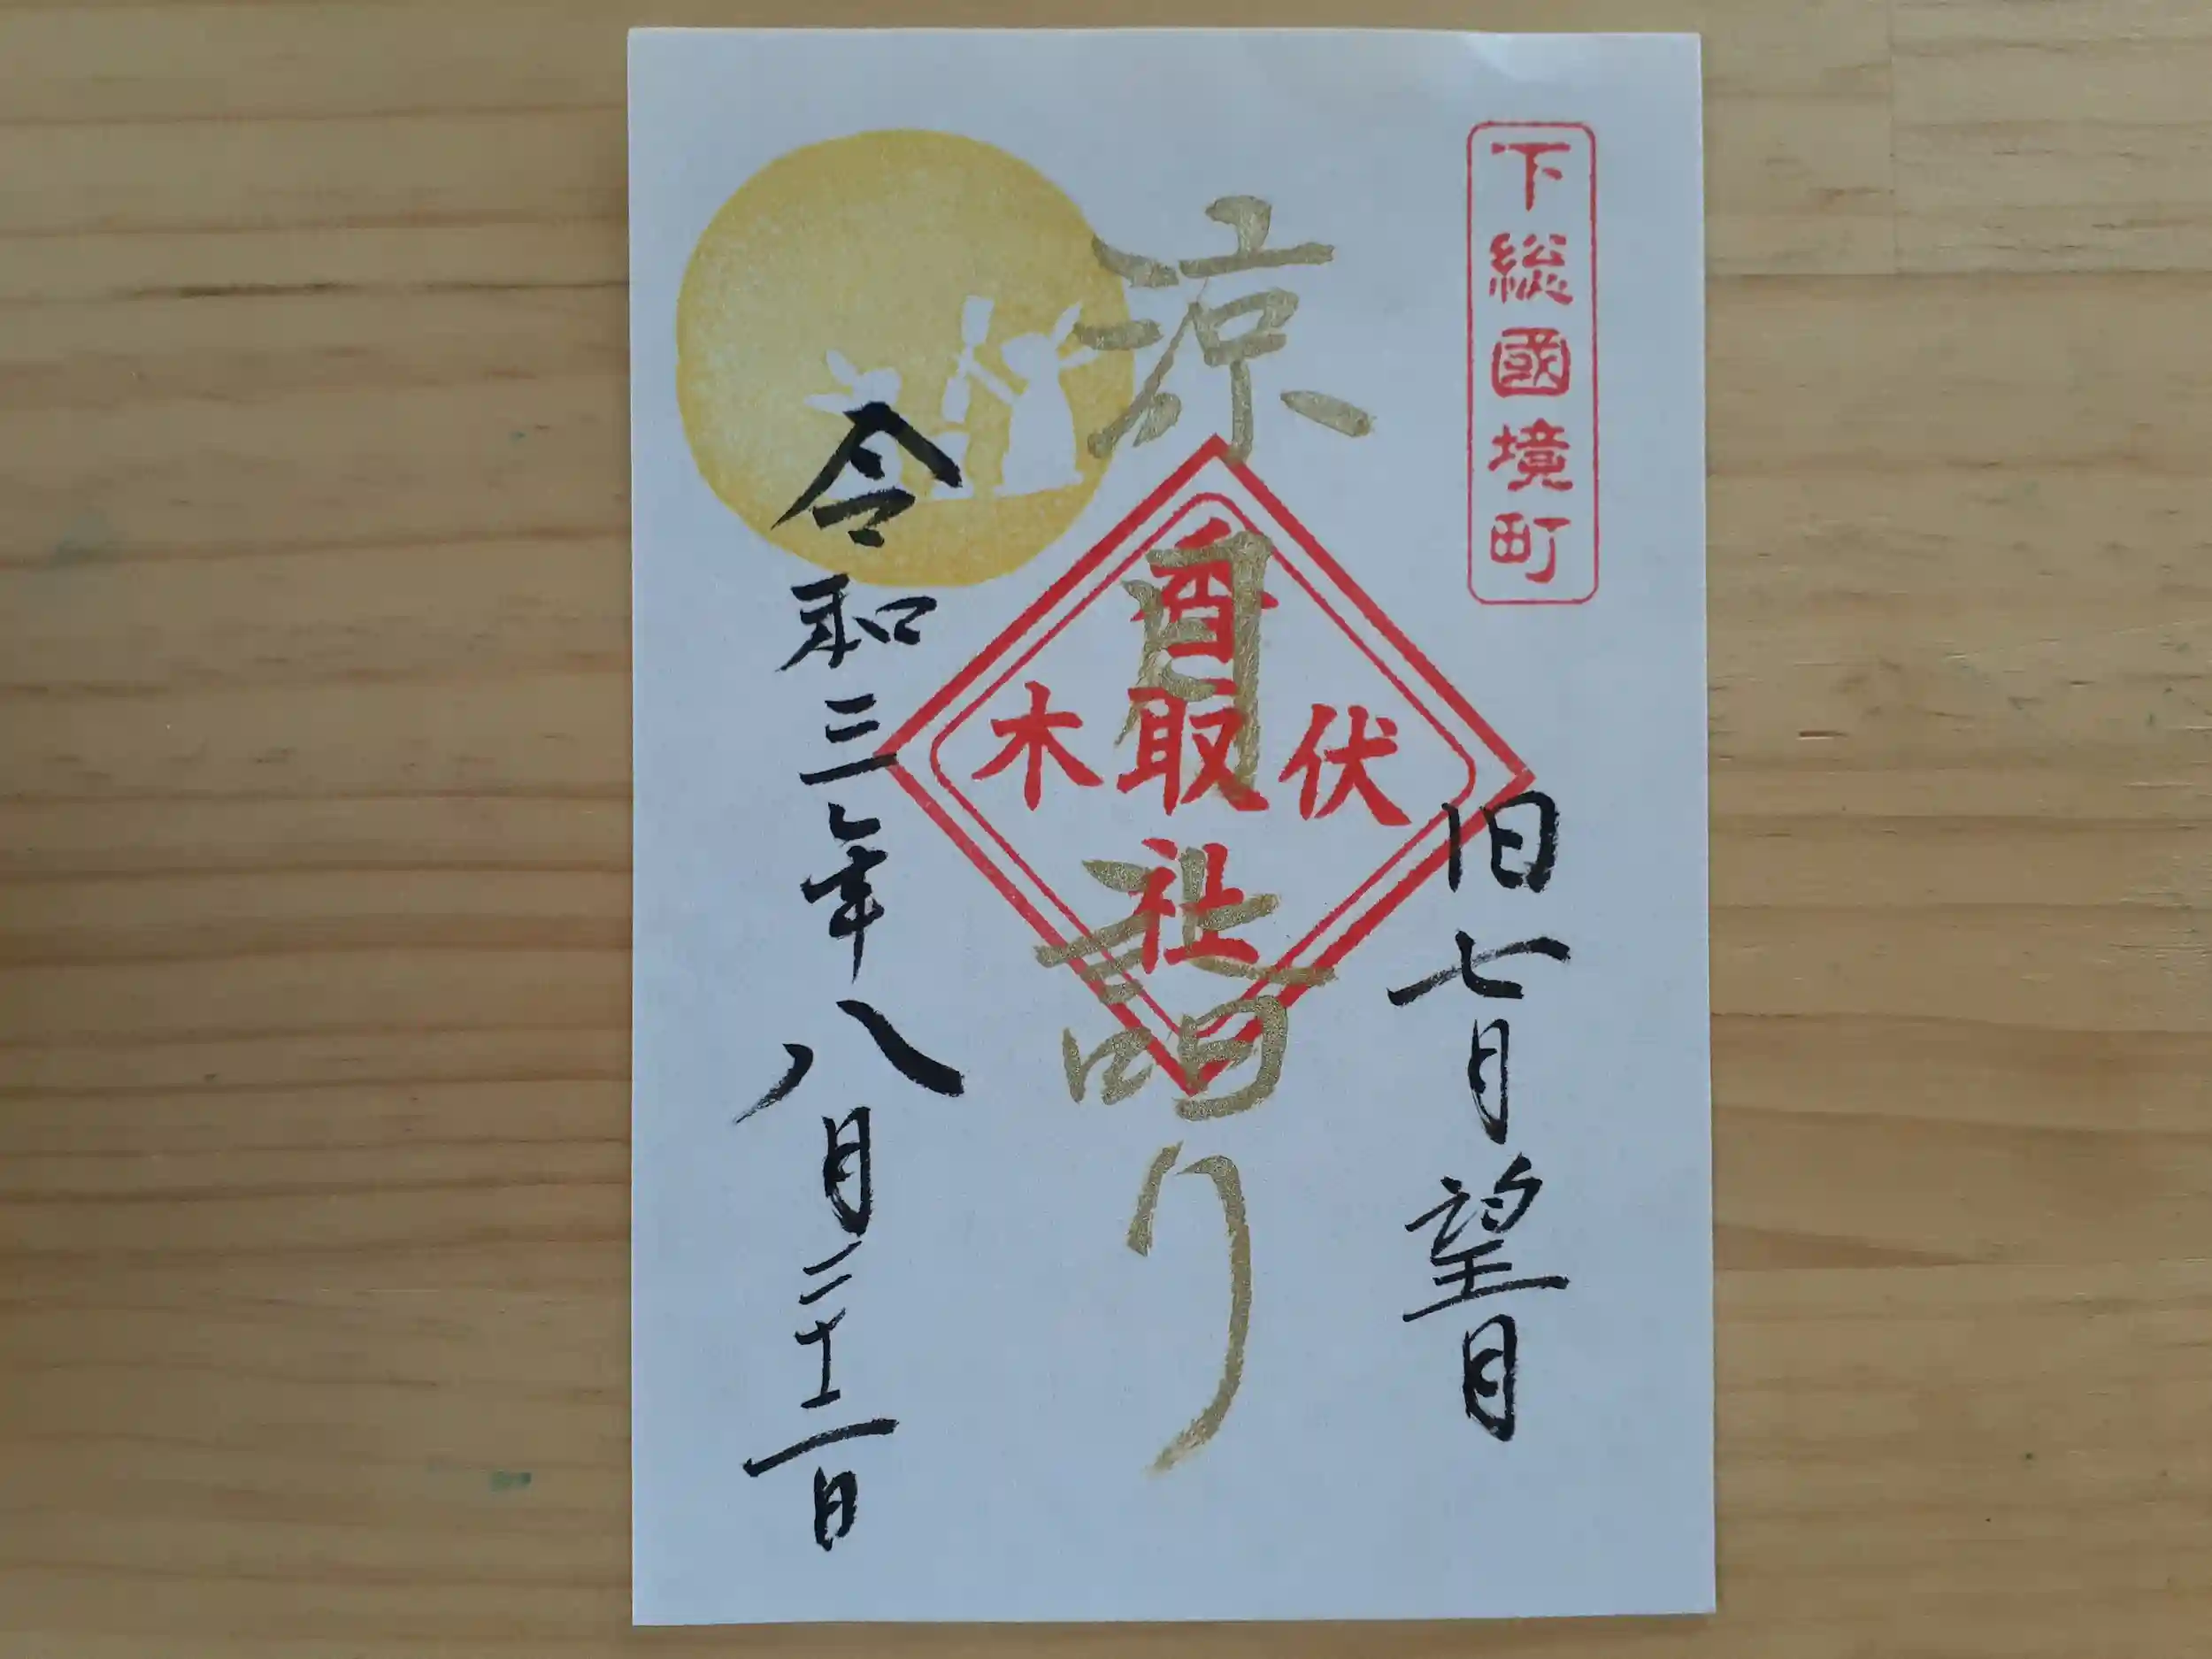 下総國境町
旧七月望月
涼月詣り
伏木
香取社
令和三年八月二十二日